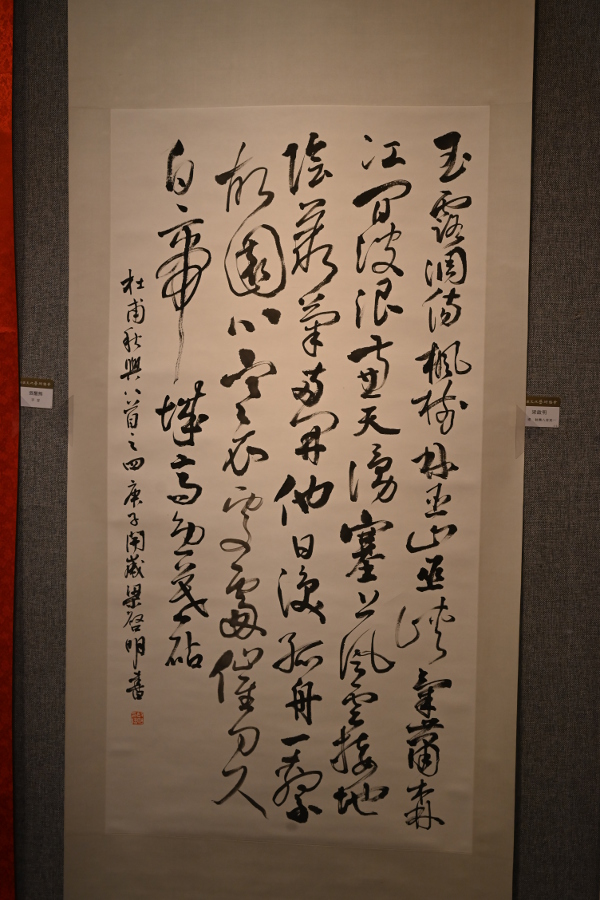 玉露凋傷楓樹林巫山巫峽氣蕭森
江間波浪兼天湧塞上風雲接地
陰叢菊兩開他日淚孤舟一繫
故園心寒衣處處催刀尺
白帝城高急暮砧
杜甫秋興八首之四 庚子開歲梁啓明書